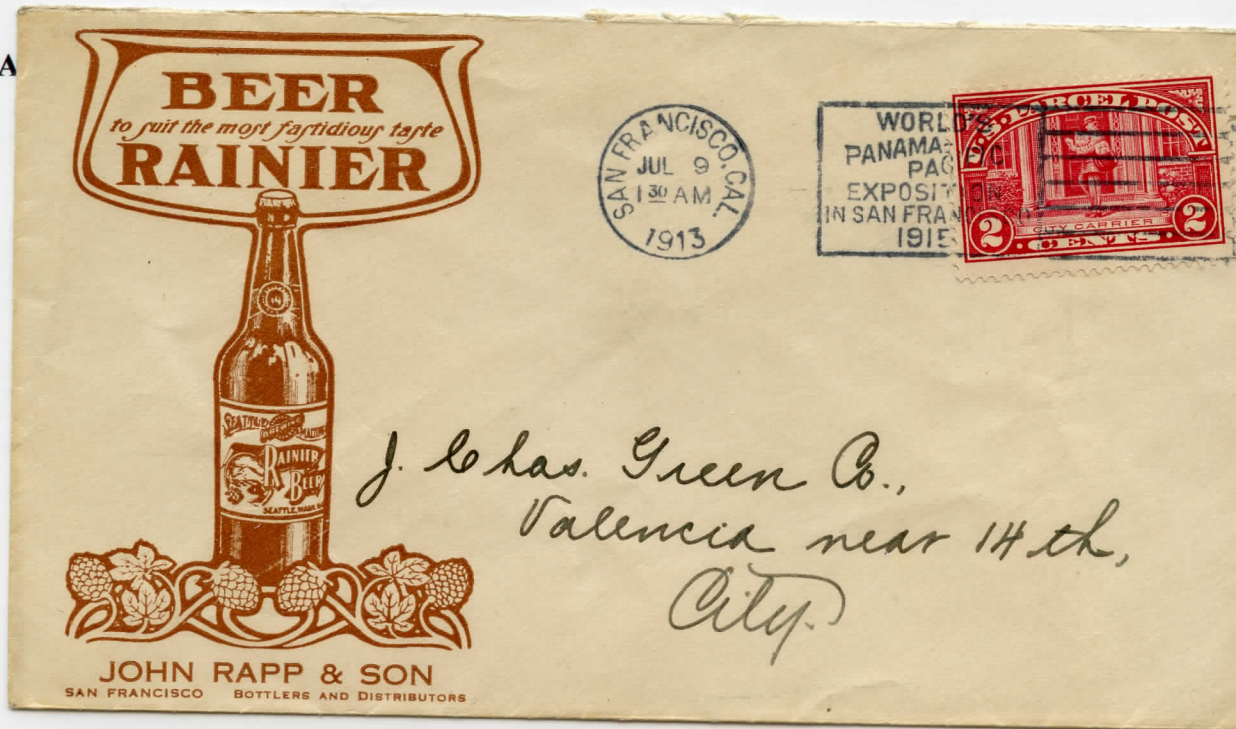 A
BEER
to suit the most fastidious taste
RAINIER
SEATTLE
RAINIER
BEER
SEATTLE, WASH.
JOHN RAPP & SON
SAN FRANCISCO BOTTLERS AND DISTRIBUTORS
SAN FRANCISCO, CAL.
JUL 9
1 30 AM
1913
WORLD'S
PANAMA-
PACIFIC
EXPOSITION
IN SAN FRAN
1915
U.S. PARCEL POST
CITY CARRIER
2 CENTS 2
J. Chas. Green Co.,
Valencia near 14th,
City.